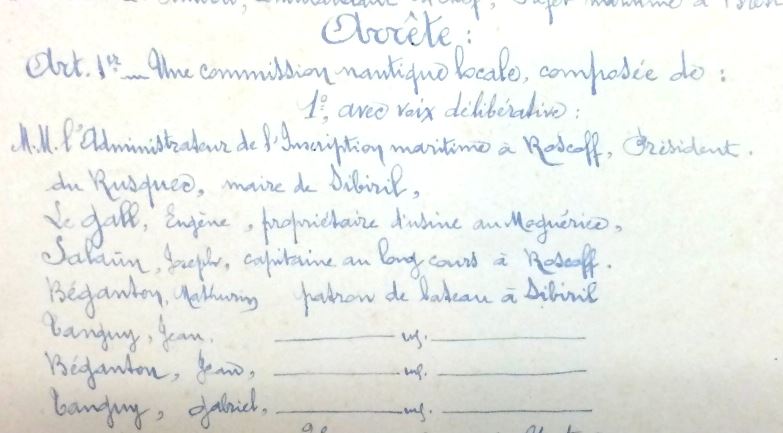 Préfet maritime à Brest
Arrête :
Art. 1er — Une commission nautique locale, composée de :
1º, avec voix délibérative :
M.M. l'Administrateur de l'Inscription maritime à Roscoff, Président.
du Rusquec, maire de Sibiril,
Le Gall, Eugène, propriétaire d'usine au Moguériec,
Salaün, Joseph, capitaine au long cours à Roscoff.
Béganton, Mathurin patron de bateau à Sibiril
Tanguy, Jean. — d° —
Béganton, Jean, — d° —
Tanguy, Gabriel, — d° —